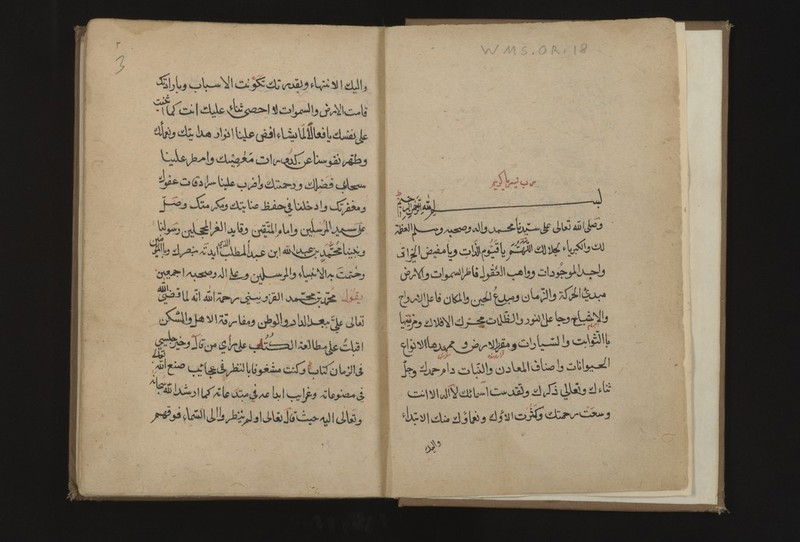 WMS. OR. 18
رب يسر يا كريم
بسم الله الرحمن الرحيم
وصلى الله تعالى على سيدنا محمد واله وصحبه وسلم العظمة
لك والكبرياء لجلالك اللهم يا قيوم الذات ويا مفيض الخيرات
واجد الموجودات وواهب العقول فاطر السموات والارض
مبدئ الحركة والزمان ومبدع الحين والمكان فاعل الارواح
والاشباح وجاعل النور والظلمات محرك الافلاك ومزينها
بالثوابت والسيارات ومقر الارض وممهدها لانواع
الحيوانات واصناف المعادن والنبات دام حمدك وجل
ثناءك وتعالى ذكرك وتقدست اسمائك لا اله الا انت
وسعت رحمتك وكثرت الاؤك ونعماؤك منك الابتداء
واليك
3
واليك الانتهاء وبقدرتك تكونت الاسباب وبارادتك
قامت الارض والسموات لا احصى ثناء عليك انت كما اثنيت
على نفسك يا فعالا لما يشاء افض علينا انوار هدايتك ومعرفتك
وطهر نفوسنا عن كدورات معصيتك وامطر علينا
سحاب فضلك ورحمتك واضرب علينا سرادقات عفوك
ومغفرتك وادخلنا في حفظ عنايتك ومكرمتك وصل
على سيد المرسلين وامام المتقين وقايد الغر المحجلين رسولنا
ونبينا محمد بن عبد الله ابن عبد المطلب الذى ايدته بنصرك وبالمؤمنين
وختمت به الانبياء والمرسلين وعلى اله وصحبه اجمعين
يقول محمد بن محمد القزويني رحمة الله انه لما قضى الله
تعالى على ببعد الدار والوطن ومفارقة الاهل والسكن
اقبلت على مطالعة الكتب على راي من قال وخير جليس
في الزمان كتاب وكنت مشغوفا بالنظر في عجايب صنع الله تعالى
في مصنوعاته وغرايب ابداعه في مبتدعاته كما ارشد الله سبحانه
وتعالى اليه حيث قال تعالى اولم ينظروا الى السماء فوقهم